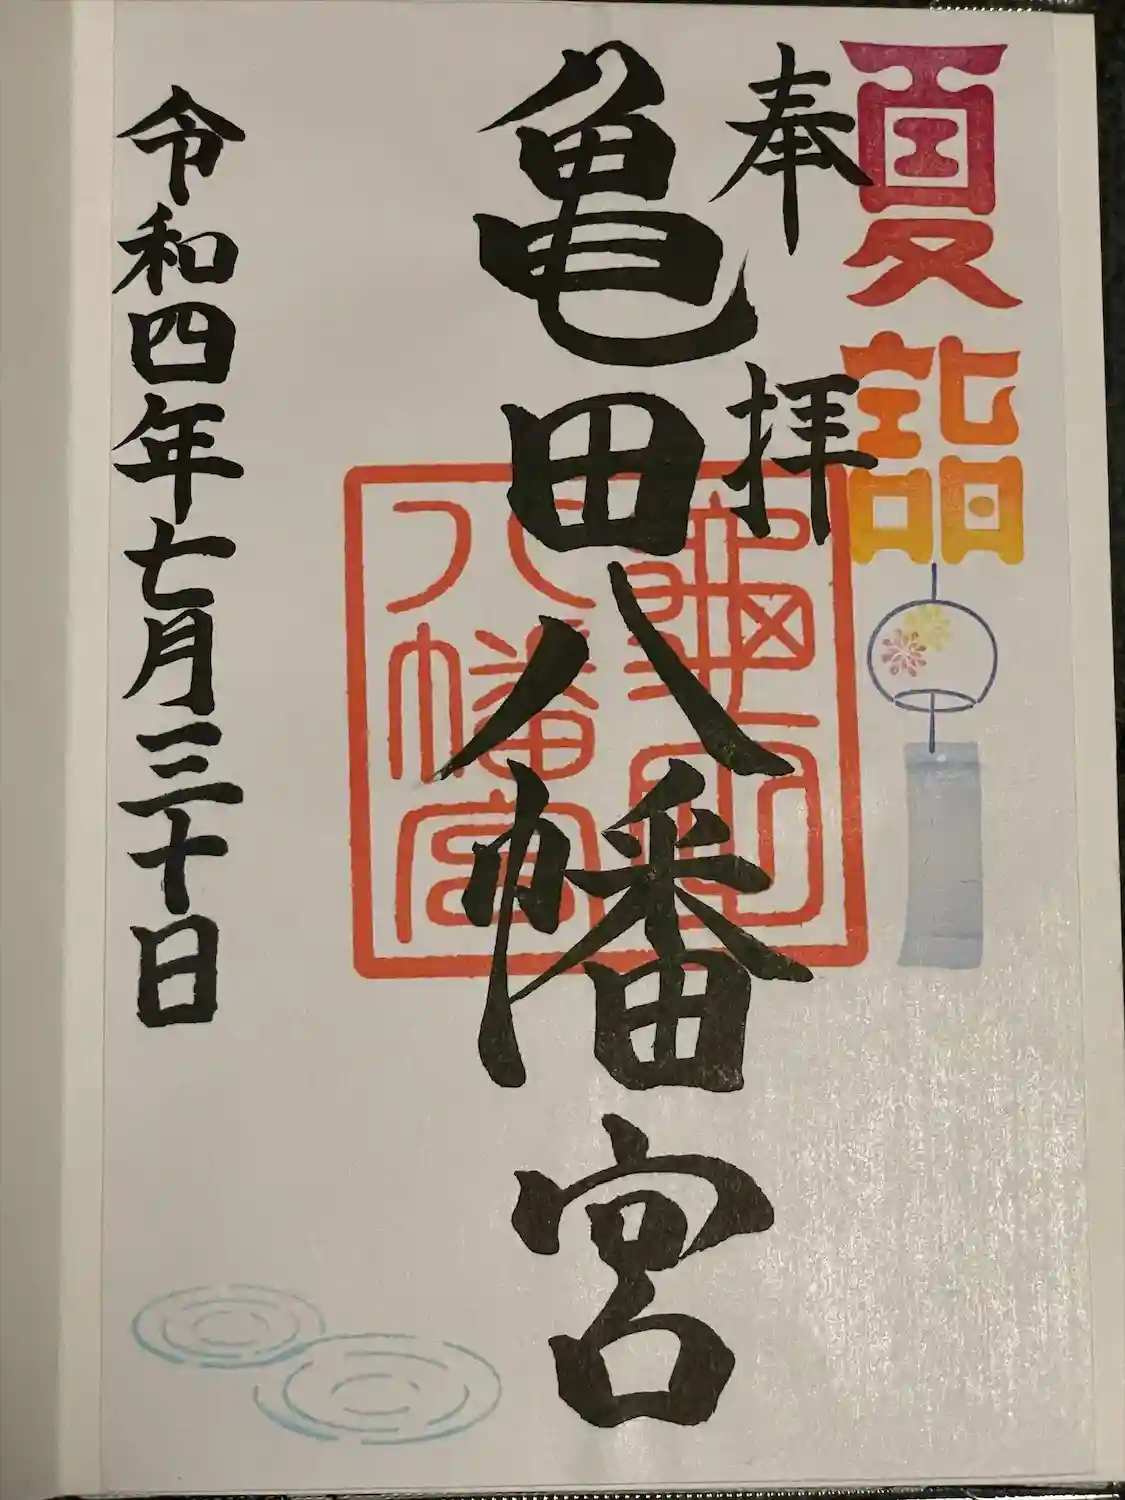 夏詣
奉拝
亀田八幡宮
龜田
八幡宮
令和四年七月三十日